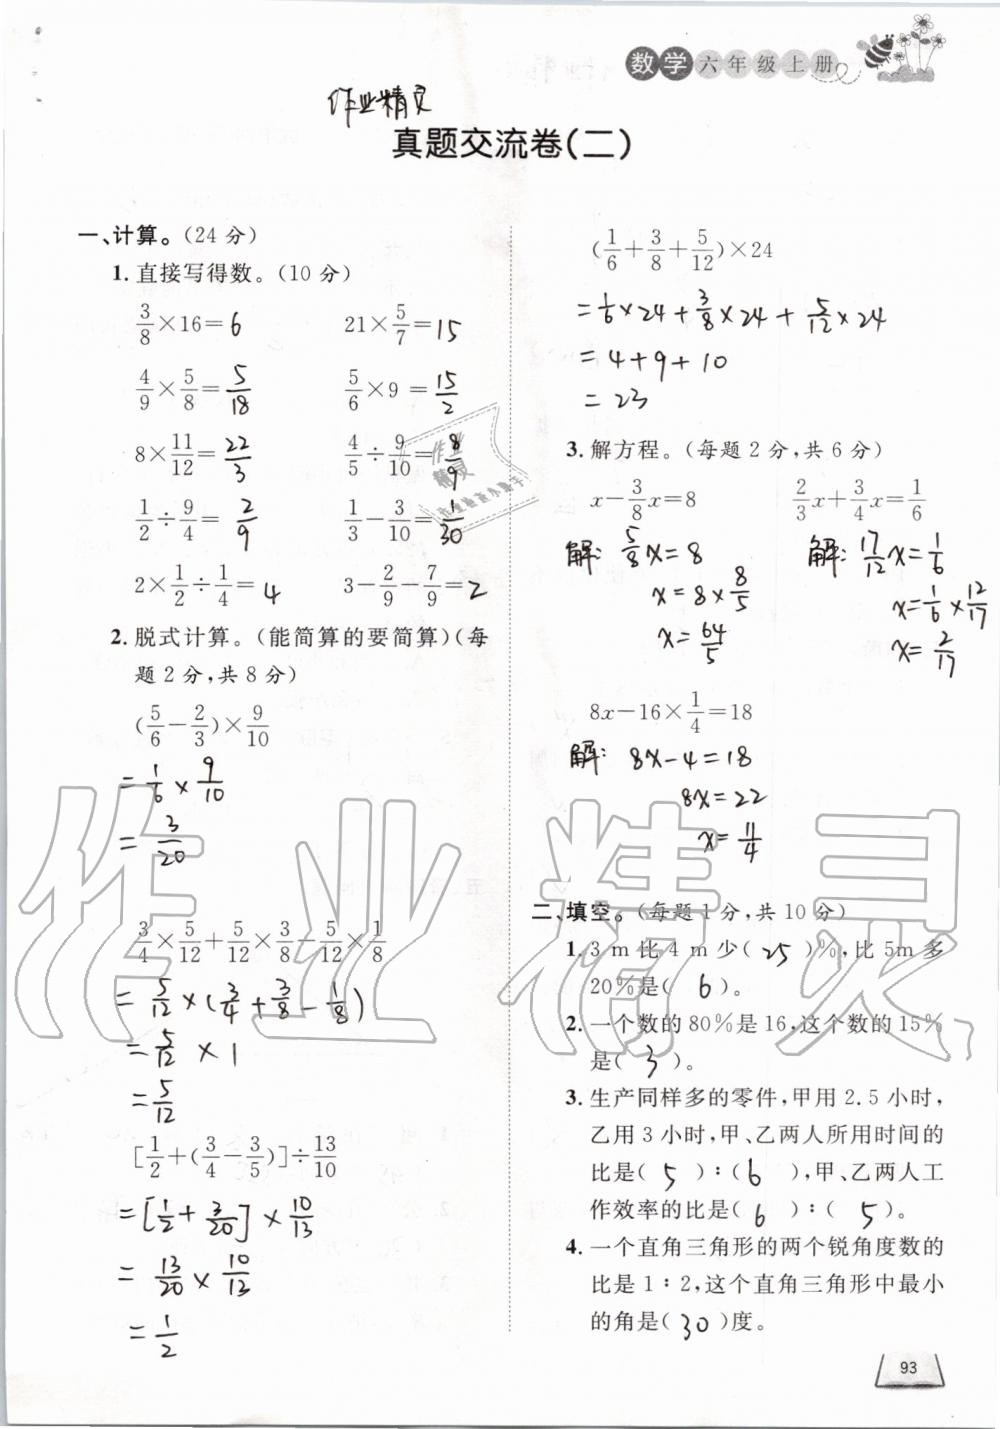 数学 六年级上册
作业精灵
真题交流卷(二)
一、计算。(24分)
1. 直接写得数。(10分)
3/8×16=6  21×5/7=15
4/9×5/8=5/18  5/6×9=15/2
8×11/12=22/3  4/5÷9/10=8/9
1/2÷9/4=2/9  1/3-3/10=1/30
2×1/2÷1/4=4  3-2/9-7/9=2
2. 脱式计算。(能简算的要简算)(每
题2分,共8分)
(5/6-2/3)×9/10
=1/6×9/10
=3/20
3/4×5/12+5/12×3/8-5/12×1/8
=5/12×(3/4+3/8-1/8)
=5/12×1
=5/12
[1/2+(3/4-3/5)]÷13/10
=[1/2+3/20]×10/13
=13/20×10/13
=1/2
(1/6+3/8+5/12)×24
=1/6×24+3/8×24+5/12×24
=4+9+10
=23
3. 解方程。(每题2分,共6分)
x-3/8x=8  2/3x+3/4x=1/6
解:5/8x=8  解:17/12x=1/6
x=8×8/5  x=1/6×12/17
x=64/5  x=2/17
8x-16×1/4=18
解: 8x-4=18
8x=22
x=11/4
二、填空。(每题1分,共10分)
1. 3 m比4 m少(25)%,比5m多
20%是(6)。
2. 一个数的80%是16,这个数的15%
是(3)。
3. 生产同样多的零件,甲用2.5小时,
乙用3小时,甲、乙两人所用时间的
比是(5):(6),甲、乙两人工
作效率的比是(6):(5)。
4. 一个直角三角形的两个锐角度数的
比是1:2,这个直角三角形中最小
的角是(30)度。
93
作业精灵
作业
精灵